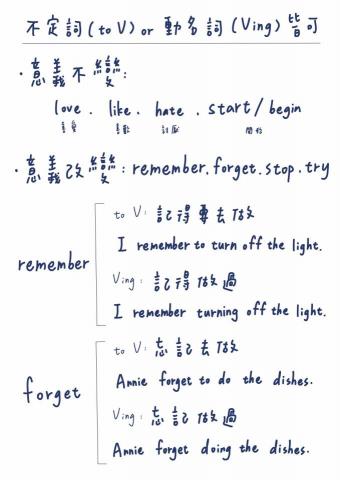 不定詞(to V) or 動名詞(Ving)皆可
・意義不變:
love . like . hate . start / begin
喜愛 喜歡 討厭 開始
・意義改變: remember. forget. stop. try
remember
to V: 記得要去做
I remember to turn off the light.
Ving: 記得做過
I remember turning off the light.
forget
to V: 忘記去做
Annie forget to do the dishes.
Ving: 忘記做過
Annie forget doing the dishes.